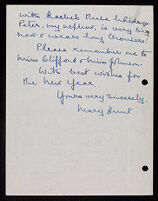 with Rachel's three children.
Peter, my nephew, is very big
now & wears long trousers!
Please remember me to
Miss Clifford & Miss Johnson.
With best wishes for
the New Year.
Yours very sincerely,
Mary Hunt